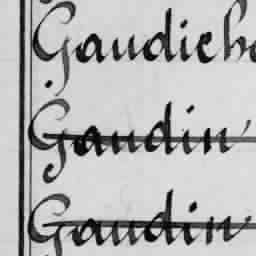 Gaudich
Gaudin
Gaudin